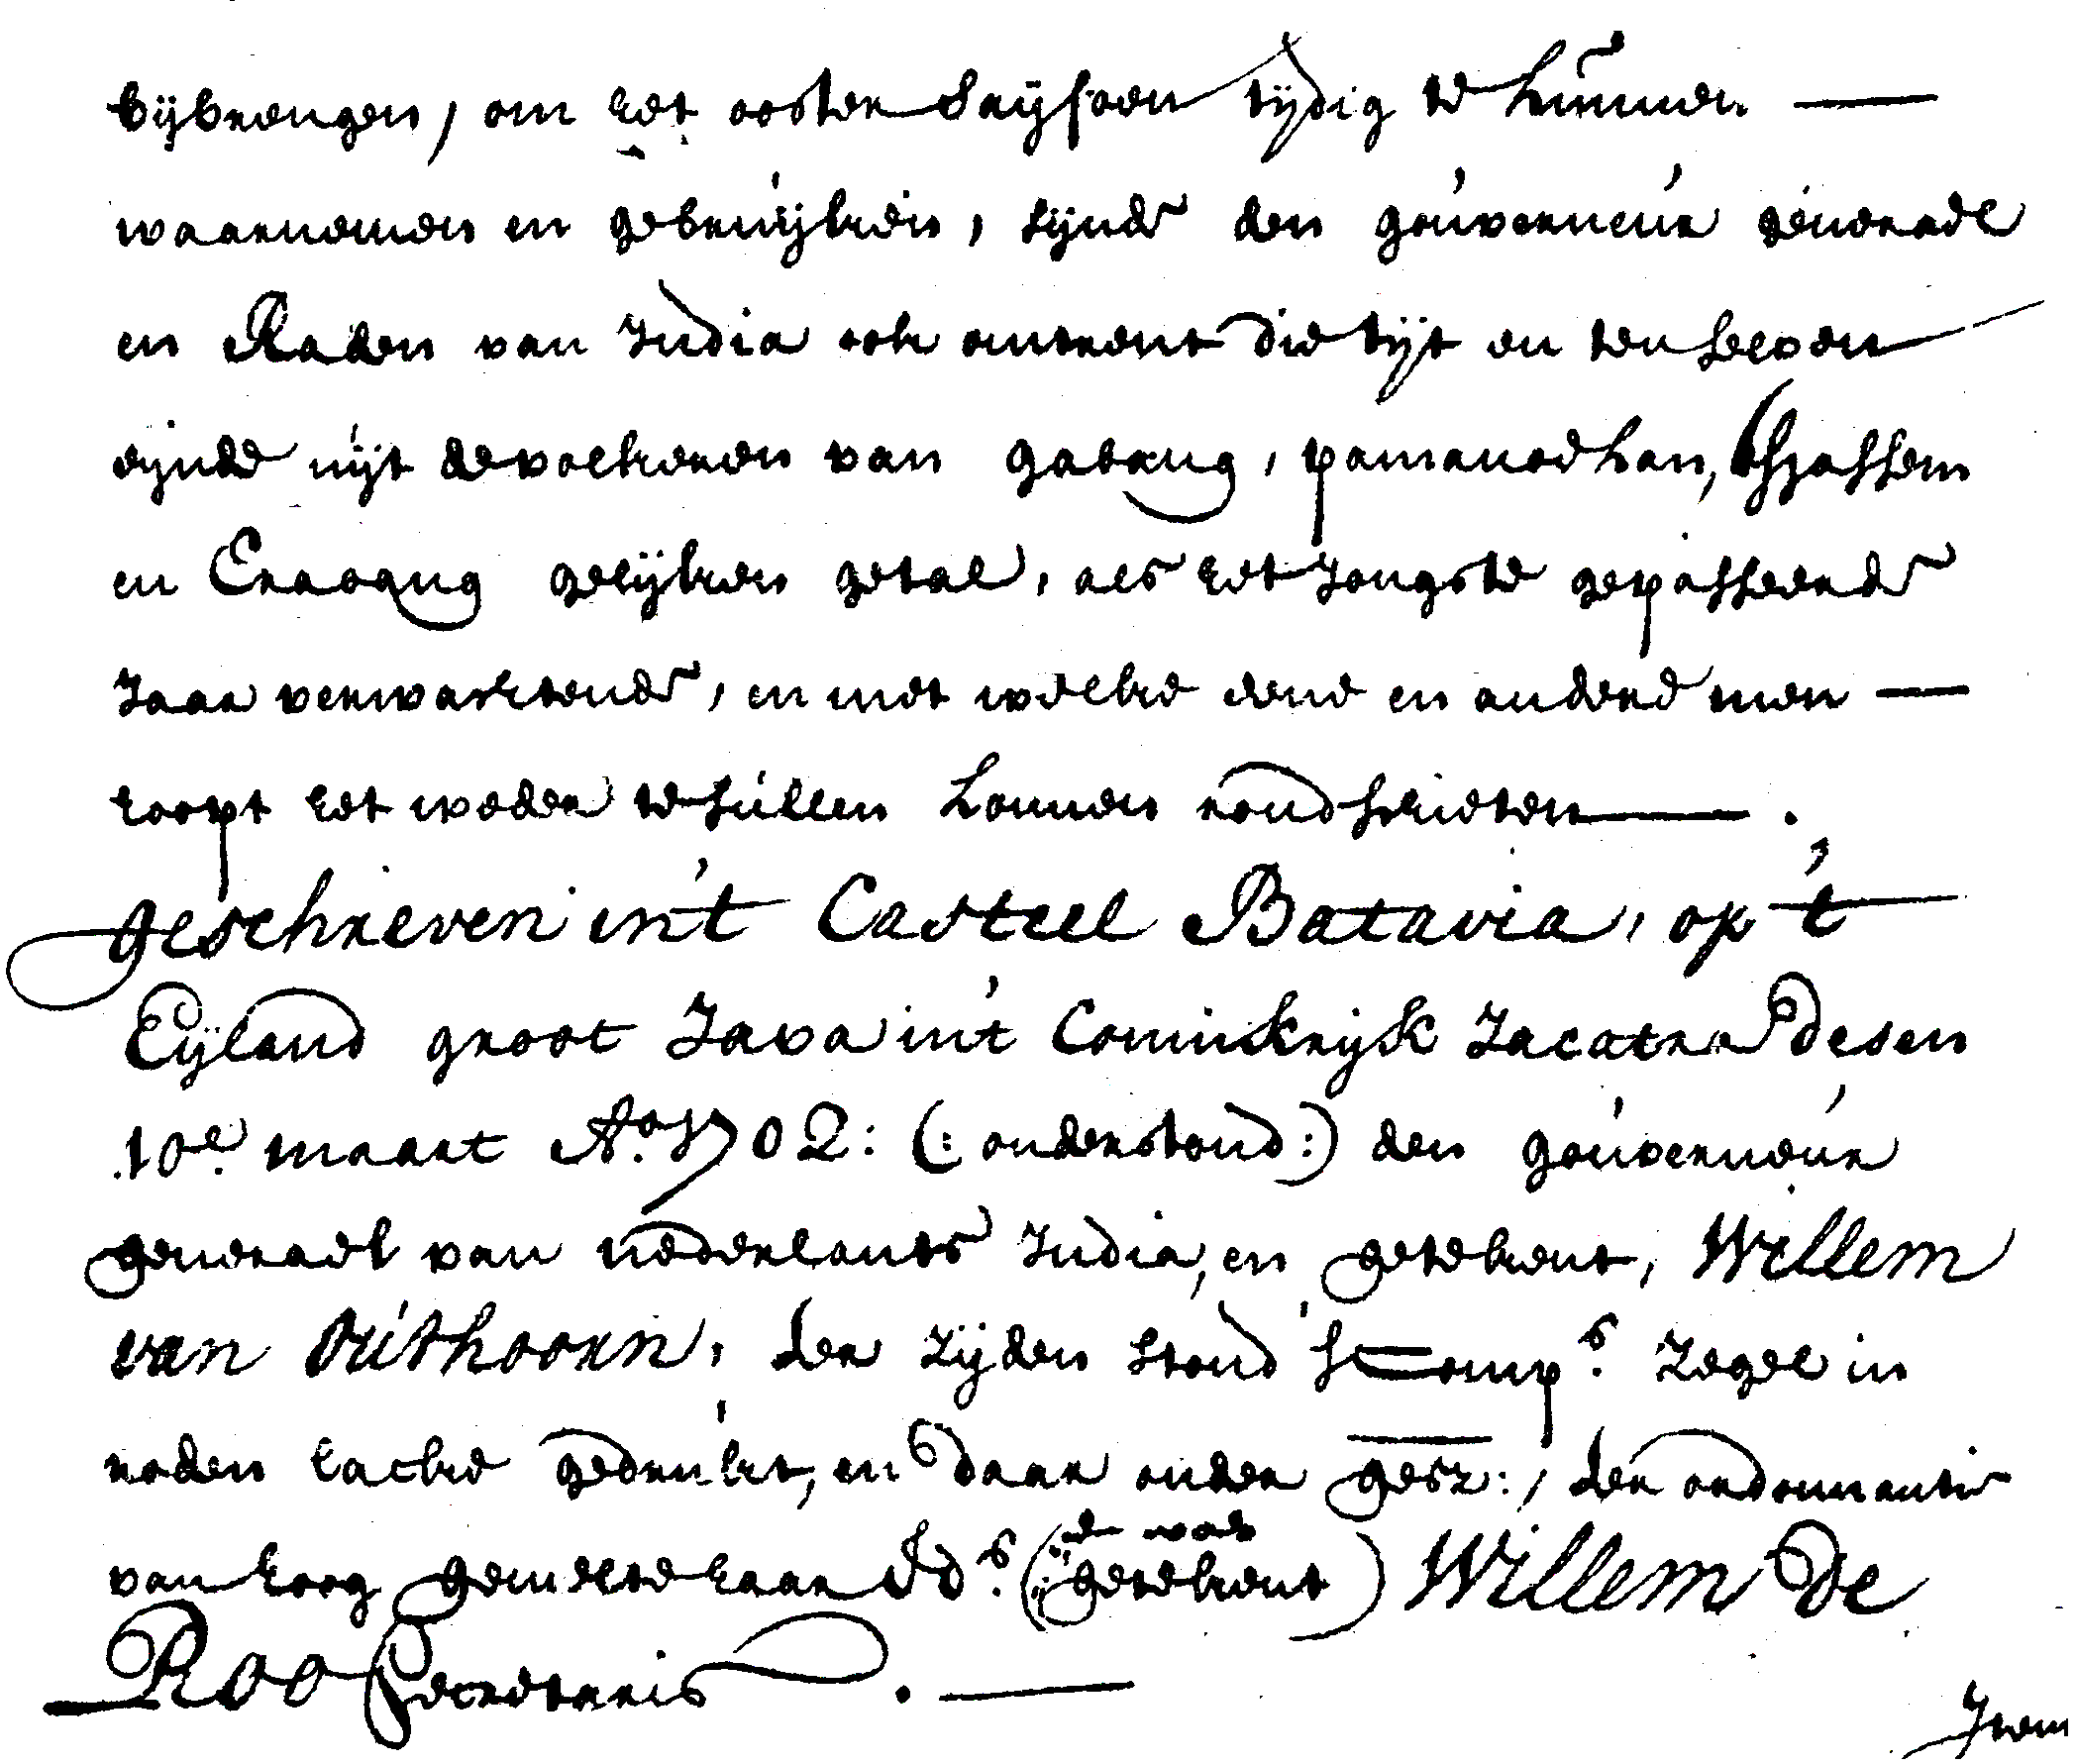 bijbrengen, om het ooster saijsoen tijdig te kunnen —
waarnemen en gebruijken, sijnde den gouverneur generael
en Raden van India ook omtrent die tijt en ten selven
eijnde uijt de volkeren van gabang, pamanoekan, Thjassem
en Craoang gelijken getal, als het Jongste gepasseerde
Jaar verwachtende, en met welke eene en andere men —
hoopt het weder te sullen konnen rond schieten — .
geschreven in't Casteel Batavia, op 't
Eijland groot Java in't Coninkrijk Jacatra desen
10e. maart Ao. 1702: (: onderstond:) den gouverneur
generael van nederlants India, en getekent, Willem
van Outhoorn, ter zijden stond 's Comps. Zegel in
roden lacke gedrukt, en daar onder gesz:, ter ordonnantie
van hoog gemelte haar Eds. (:en was getekent) Willem de
Roo Secretaris . —
Item